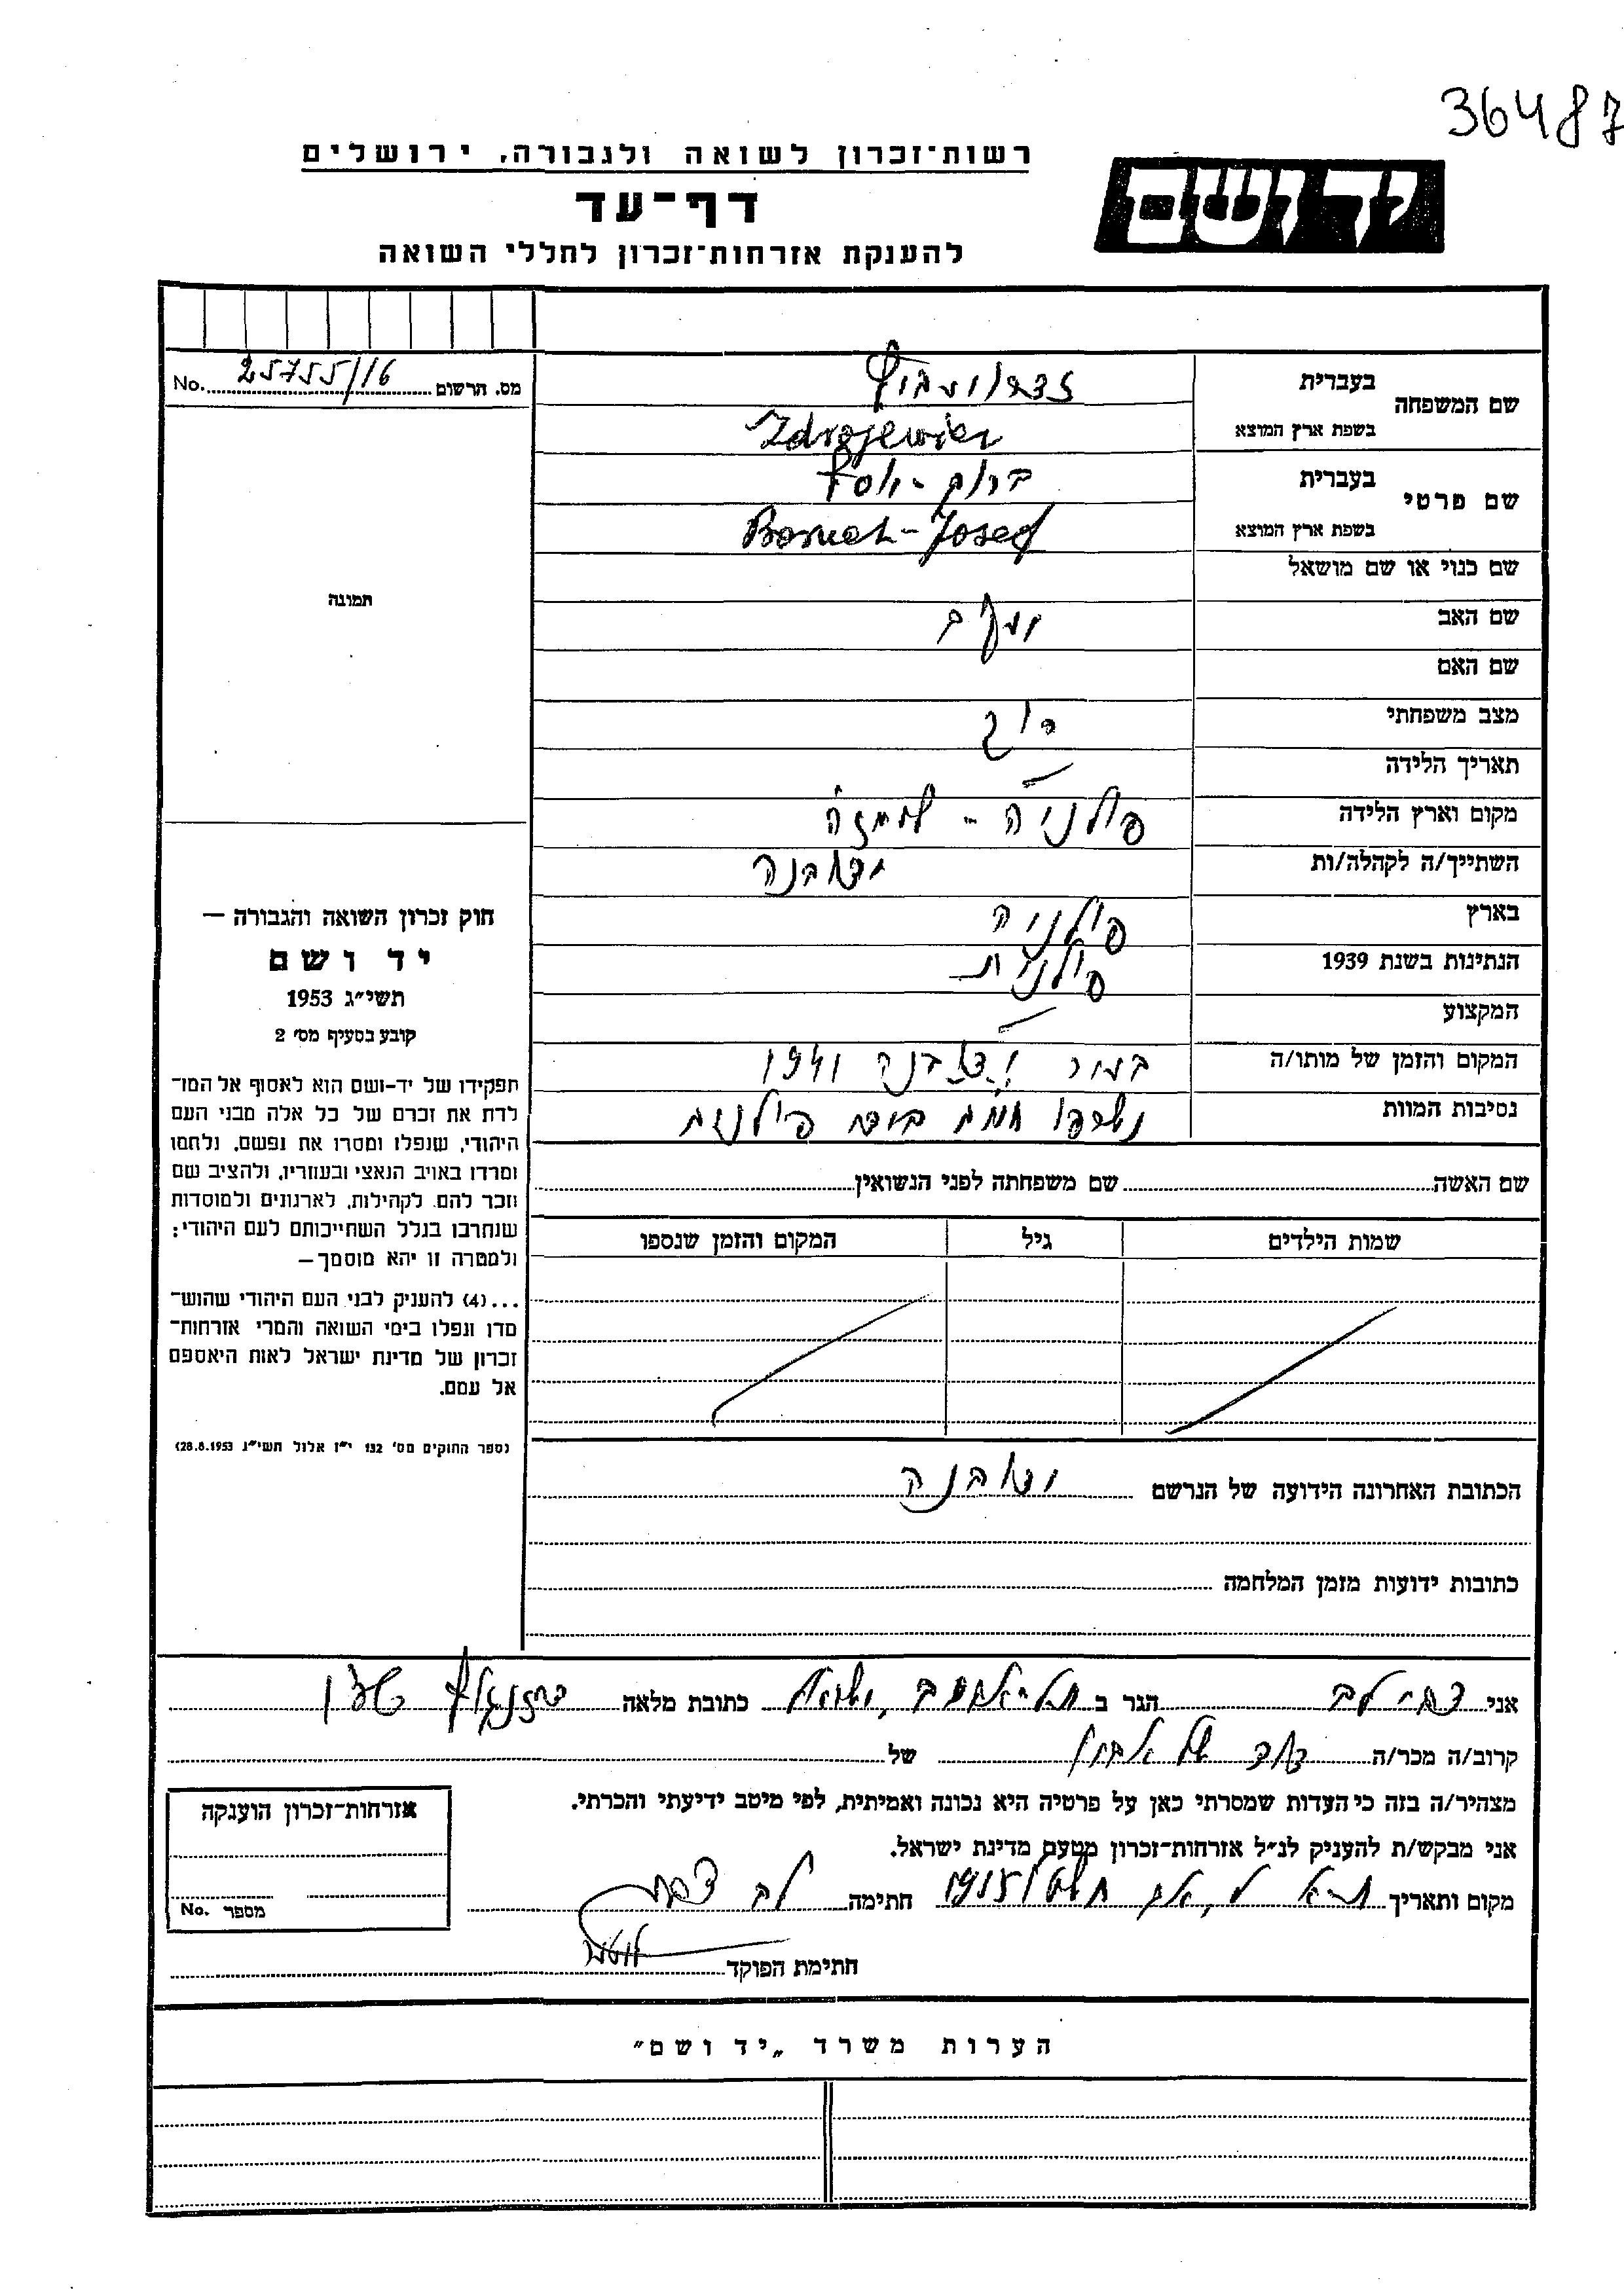 36487
רשות־זכרון לשואה ולגבורה, ירושלים
יד ושם
דף־עד
להענקת אזרחות־זכרון לחללי השואה
מס. הרשום 25755/16 No.
שם המשפחה
בעברית
בשפת ארץ המוצא Zdrojewicz
שם פרטי
בעברית ברוך - יוסף
בשפת ארץ המוצא Boruch-Josef
שם כנוי או שם מושאל
שם האב יעקב
שם האם
מצב משפחתי רווק
תאריך הלידה —
מקום וארץ הלידה פולניה - לומזה
השתייך/ה לקהלה/ות ידובנה
בארץ פולניה
הנתינות בשנת 1939 פולנית
המקצוע —
המקום והזמן של מותו/ה ידובנה 1941
נסיבות המוות נשרפו
שם האשה שם משפחתה לפני הנשואין
שמות הילדים גיל המקום והזמן שנספו
הכתובת האחרונה הידועה של הנרשם ידובנה
כתובות ידועות מזמן המלחמה
תמונה
חוק זכרון השואה והגבורה —
יד ושם
תשי״ג 1953
קובע בסעיף מס׳ 2
תפקידו של יד-ושם הוא לאסוף אל המו־
לדת את זכרם של כל אלה מבני העם
היהודי, שנפלו ומסרו את נפשם, נלחמו
ומרדו באויב הנאצי ובעוזריו, ולהציב שם
וזכר להם, לקהילות, לארגונים ולמוסדות
שנחרבו בגלל השתייכותם לעם היהודי;
ולמטרה זו יהא מוסמך—
...(4) להעניק לבני העם היהודי שהוש־
מדו ונפלו בימי השואה והמרי אזרחות־
זכרון של מדינת ישראל לאות היאספם
אל עמם.
(ספר החוקים מס׳ 132 י״ז אלול תשי״ג 28.8.1953)
אני הגר ב תל אביב, ישראל כתובת מלאה
קרוב/ה מכר/ה של
מצהיר/ה בזה כי העדות שמסרתי כאן על פרטיה היא נכונה ואמיתית, לפי מיטב ידיעתי והכרתי.
אני מבקש/ת להעניק לנ״ל אזרחות־זכרון מטעם מדינת ישראל.
מקום ותאריך חתימה
חתימת הפוקד
אזרחות־זכרון הוענקה
מספר No.
הערות משרד „יד ושם״